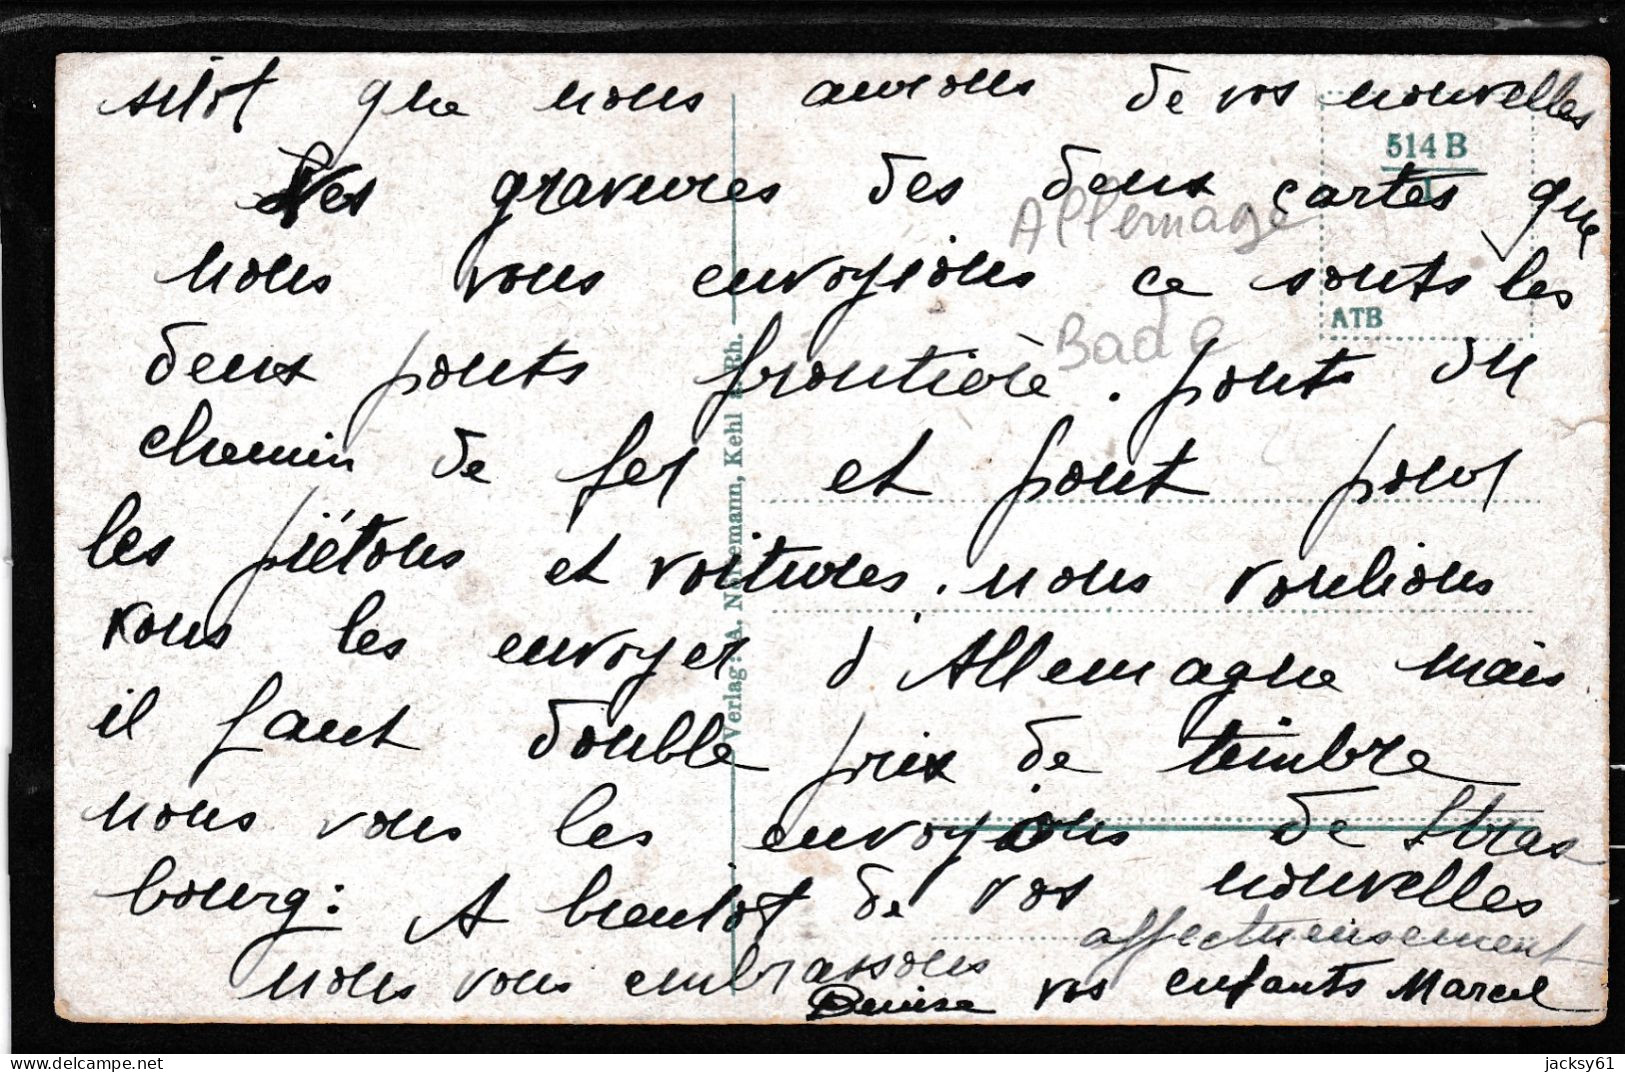 sitot que nous aurions de vos nouvelles
514 B
I
Les gravures des deux cartes que
Allemagne
nous vous envoyions ce sonts les
ATB
Bade
deux ponts frontière. ponts du
chemin de fer et pont pour
les piétons et voitures. nous voulions
vous les envoyer d'Allemagne mais
il faut double prix de timbre
nous vous les envoyons de Stras
bourg: A bientot de vos nouvelles
nous vous embrassons affectueusement
Denise vos enfants Marcel
Verlag: A. Nünemann, Kehl a. Rh.
jacksy61